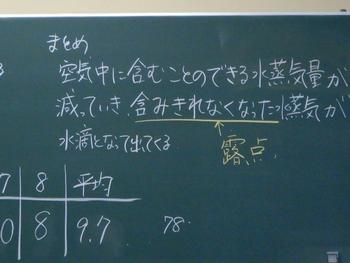 まとめ
空気中に含むことのできる水蒸気量が
減っていき、含みきれなくなった水蒸気が
水滴となって出てくる
露点
7 8 平均
0 8 9.7
78.